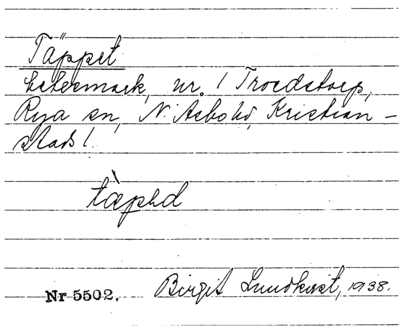 Täppet
betesmark, nr. 1 Troedstorp,
Rya sn, N. Åsbo hd, Kristian-
stads l.
tæpəd
Nr 5502. Birgit Lundkvist, 1938.